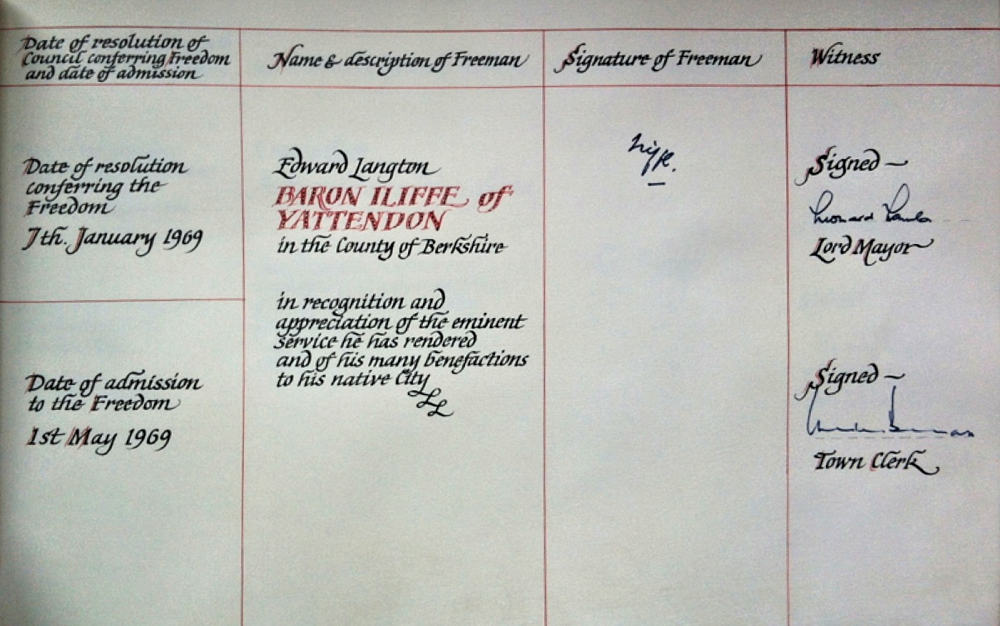 Date of resolution of
Council conferring Freedom
and date of admission
Name & description of Freeman
Signature of Freeman
Witness
Date of resolution
conferring the
Freedom
7th. January 1969
Edward Langton
BARON ILIFFE of
YATTENDON
in the County of Berkshire
in recognition and
appreciation of the eminent
service he has rendered
and of his many benefactions
to his native City
Signed
Lord Mayor
Date of admission
to the Freedom
1st May 1969
Signed
Town Clerk